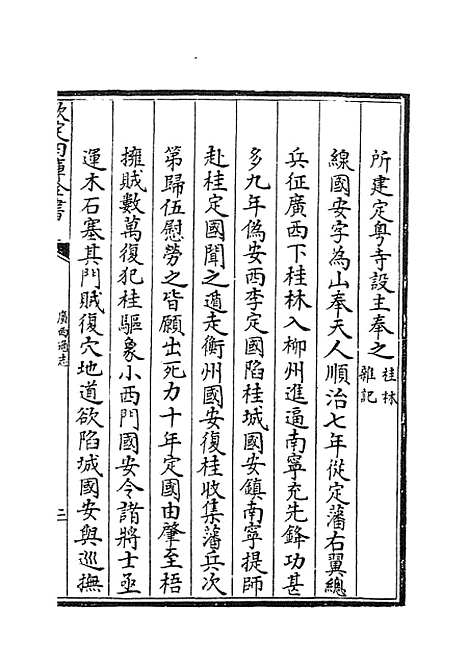 所建定粤寺設主奉之桂林雜記
線國安字為山奉天人順治七年從定藩右翼總
兵征廣西下桂林入柳州進逼南寧充先鋒功甚
多九年偽安西李定國陷桂城國安鎮南寧提師
赴桂定國聞之遁走衡州國安復桂收集藩兵次
第歸伍慰勞之皆願出死力十年定國由肇至梧
擁賊數萬復犯桂驅象小西門國安令諸將士亟
運木石塞其門賊復穴地道欲陷城國安與巡撫
欽定四庫全書
廣西通志
二